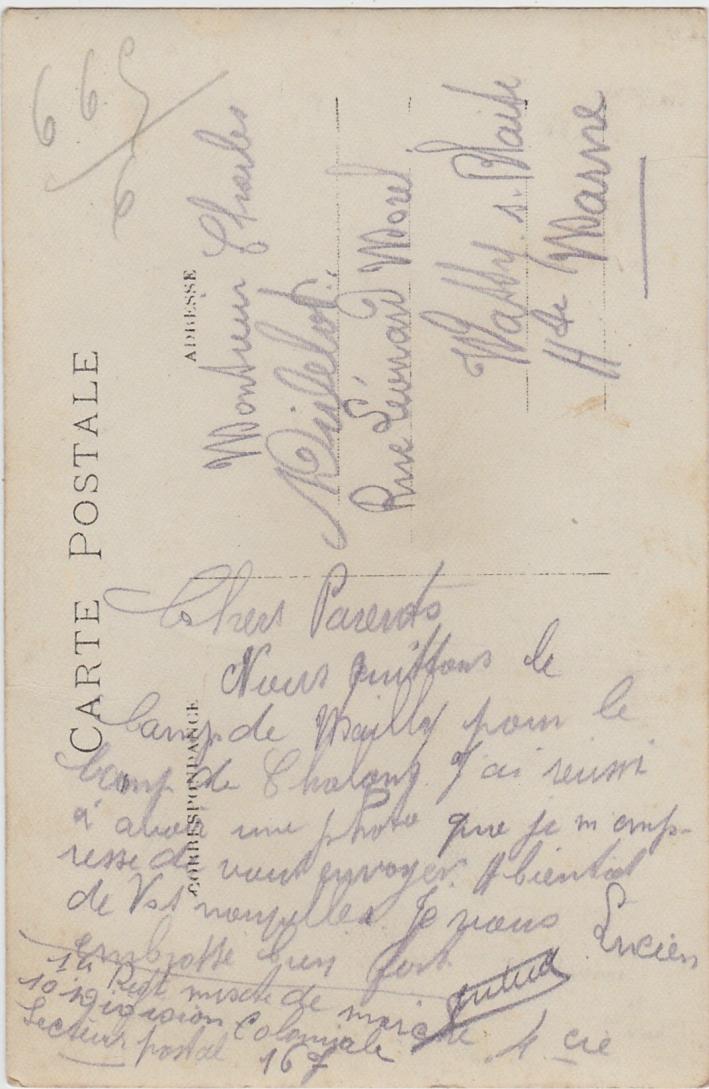 CARTE POSTALE
CORRESPONDANCE
ADRESSE
Chers Parents
Nous quittons le
Camp de Mailly pour le
Camp de Chalons J'ai reussi
a avoir une photo que je m emp-
resse de vous envoyer. A bientot
de Vos nouvelles. Je vous
embrasse bien fort
Lucien
1er Regt mixte de marche
10 e Division Coloniale 4 cie
Secteur postal 167
Monsieur Charles
Rue Léonard Morel
Wassy s. Blaise
Hte Marne
66